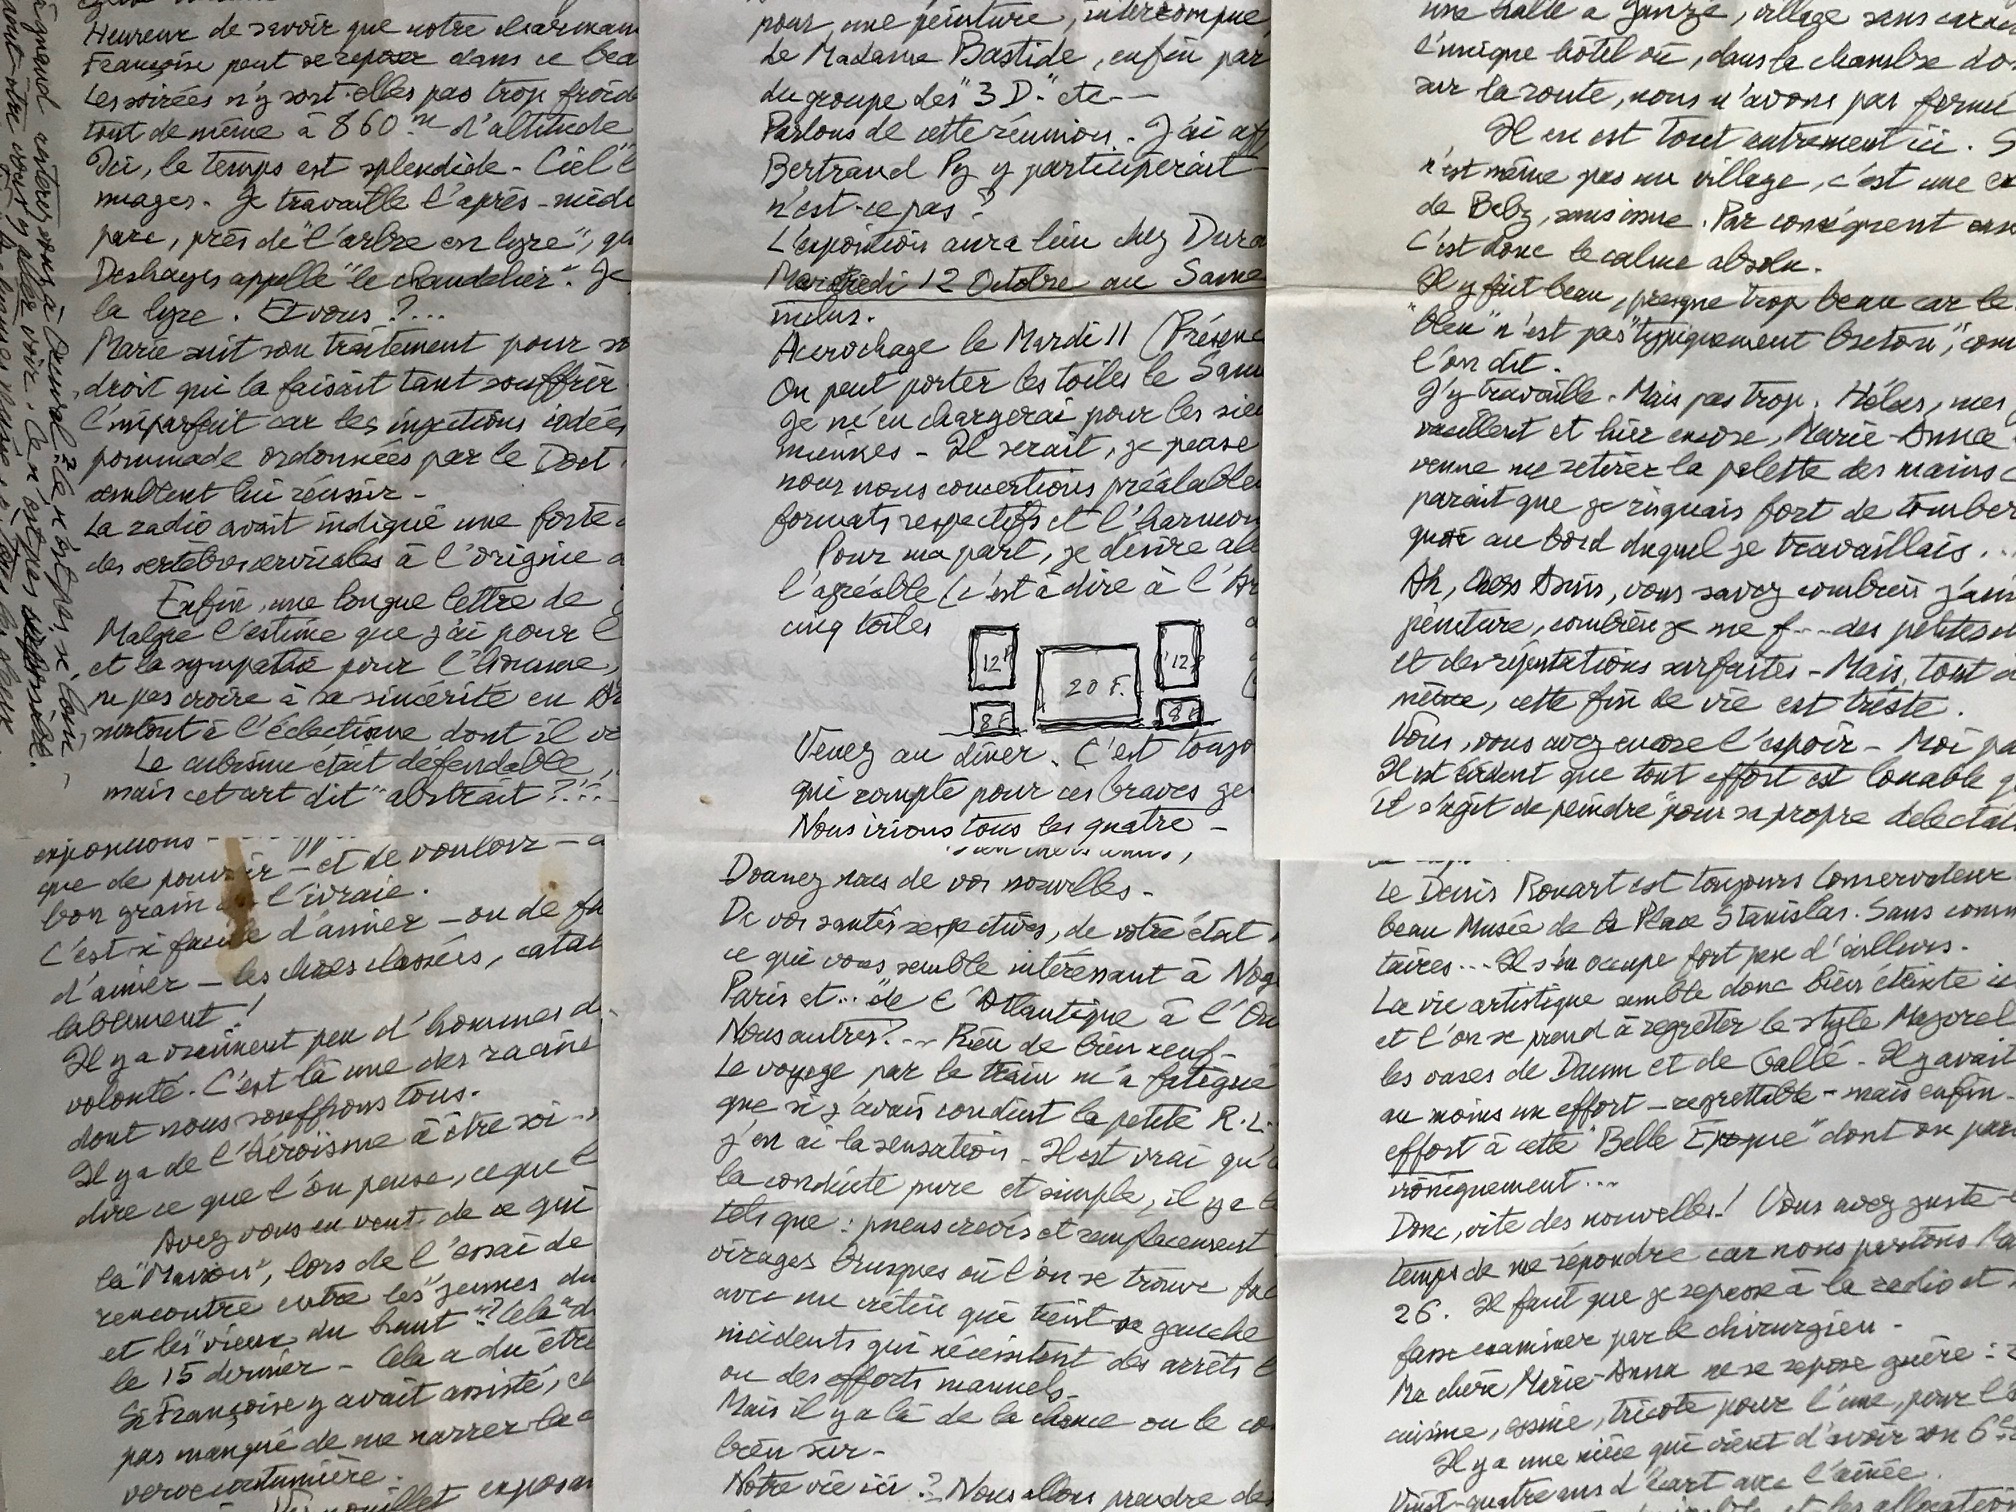 Heureux de savoir que notre charman
Françoise peut se reposer dans ce bea
Les soirées n'y sont-elles pas trop froide
tout de même à 860 m d'altitude
Ici, le temps est splendide - Ciel
nuages - Je travaille l'après-midi
parc, près de "l'arbre en lyre", qu
Deshayes appelle "le chandelier". Je
la lyre. Et vous ?...
Marie suit son traitement pour so
droit qui la faisait tant souffrir
l'imparfait car les injections iodées
pommade ordonnées par le Doct
semblent lui réussir -
La radio avait indiqué une forte
des vertèbres cervicales à l'origine d
Enfin, une longue lettre de
Malgré l'estime que j'ai pour l
et la sympathie pour l'homme,
ne pas croire à sa sincérité en Ar
surtout à l'éclectisme dont il ve
Le cubisme était défendable,
mais cet art dit "abstrait ?!!-
pour une peinture, interrompue,
de Madame Bastide, enfin par
du groupe des "3 D." etc---
Parlons de cette réunion. J'ai
Bertrand Py y participerait
n'est-ce pas ?
L'exposition aura lieu chez Dura
Mercredi 12 Octobre au Same
inclus.
Accrochage le Mardi 11 (Présenc
On peut porter les toiles le Sam
Je m'en chargerai pour les sien
miennes - Il serait, je pense
nous nous concertions préalable
formats respectifs et l'harmon
Pour ma part, je désire
l'agréable (c'est à dire à l'Ar
cinq toiles
12P 20 F. 12P
8F 8F
Venez au dîner. C'est toujo
qui compte pour ces braves ge
Nous irions tous les quatre -
une halte à , village sans carac
l'unique hôtel où, dans la chambre don
sur la route, nous n'avons pas fermé
Il en est tout autrement ici. S
n'est même pas un village, c'est une ex
de Belz, sans issue. Par conséquent
C'est donc le calme absolu.
Il y fait beau, presque trop beau car le
"bleu" n'est pas "typiquement breton", com
l'on dit.
J'y travaille. Mais pas trop. Hélas, mes
vacillent et hier encore, Marie-Anna
venue me retirer la palette des mains
paraît que je risquais fort de tomber
quai au bord duquel je travaillais...
Ah, chers Amis, vous savez combien j'aim
peinture, combien je me f... des petites
et des réputations surfaites - Mais, tout d
même, cette fin de vie est triste.
Vous, vous avez encore l'espoir - Moi pa
Il est évident que tout effort est louable q
il s'agit de peindre "pour sa propre délectat
expositions -
que de pouvoir - et de vouloir - a
bon grain l'ivraie.
C'est si facile d'aimer - ou de
d'aimer - les choses classées, catal
lablement !
Il y a vraiment peu d'hommes d
volonté. C'est là une des racine
dont nous souffrons tous.
Il y a de l'héroïsme à être soi-
dire ce que l'on pense, ce que l
Avez vous eu vent de ce qui
la "Maison", lors de l'essai de
rencontre entre les "jeunes du
et les "vieux du haut" ? Cela
le 15 dernier - Cela a du être
Si Françoise y avait assisté,
pas manqué de me narrer la
verve coutumière.
exposan
Donnez nous de vos nouvelles -
De vos santés respectives, de votre état
ce qui vous semble intéressant à Nog
Paris et... "de l'Atlantique à l'Ou
Nous autres ?-- Rien de bien neuf -
Le voyage par le train m'a fatigué
que si j'avais conduit la petite R.4.
j'en ai la sensation - Il est vrai qu'
la conduite pure et simple, il y a
tels que : pneus crevés et remplacement
virages brusques où l'on se trouve fac
avec un crétin qui tient sa gauche
incidents qui nécessitent des arrêts
ou des efforts manuels.
Mais il y a là de la chance ou le co
bien sûr -
Notre vie ici ? Nous allons prendre des
Le Denis Rouart est toujours Conservateur
beau Musée de la Place Stanislas. Sans comm
taires... Il s'en occupe fort peu d'ailleurs.
La vie artistique semble donc bien éteinte ic
et l'on se prend à regretter le style Majorel
les vases de Daum et de Gallé - Il y avait
au moins un effort - regrettable - mais enfin
effort à cette "Belle Epoque" dont on par
ironiquement...
Donc, vite des nouvelles ! Vous avez juste
temps de me répondre car nous partons
26. Il faut que je repasse à la radio et
fasse examiner par le chirurgien -
Ma chère Marie-Anna ne se repose guère :
cuisine, tricote pour l'une, pour l'
Il y a une nièce qui vient d'avoir son 6e
Vingt-quatre ans d'écart avec l'aînée.